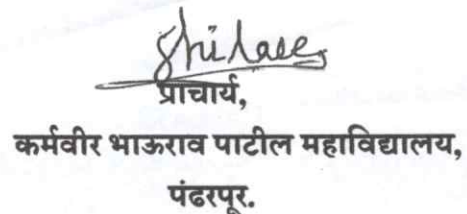 प्राचार्य,
कर्मवीर भाऊराव पाटील महाविद्यालय,
पंढरपूर.